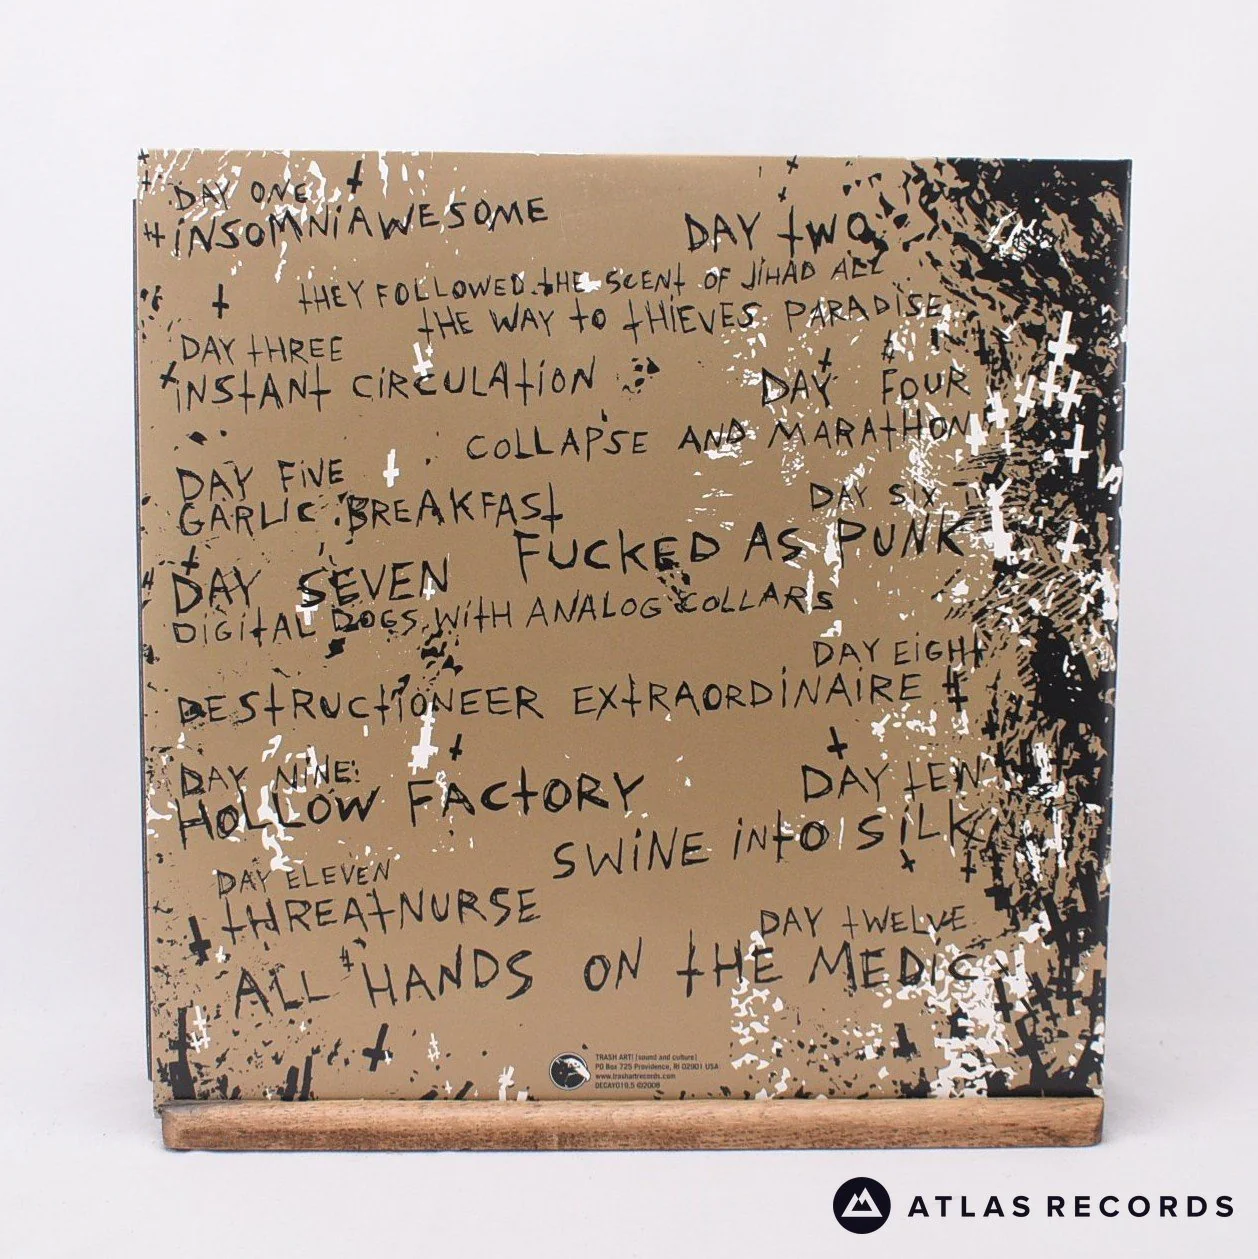 DAY ONE
iNSOMNiAWESOME
DAY tWO
tHEY FOLLOWED tHE SCENt OF JiHAD ALL
tHE WAY tO tHiEVES PARADiSE
DAY tHREE
iNStANt CiRCULAtiON
DAY FOUR
COLLAPSE AND MARAtHON
DAY FiVE
GARLiC BREAKFASt
DAY SiX
FUCKED AS PUNK
DAY SEVEN
DiGitAL DOGS WitH ANALOG COLLARS
DAY EiGHt
DEStRUCtiONEER EXtRAORDiNAiRE
DAY NiNE:
HOLLOW FACtORY
DAY tEN
SWiNE iNtO SiLK
DAY ELEVEN
tHREAtNURSE
DAY tWELVE
ALL HANDS ON tHE MEDiC
TRASH ART! [sound and culture]
PO Box 725 Providence, RI 02901 USA
www.trashartrecords.com
DECAY019.5 ©2008
ATLAS RECORDS